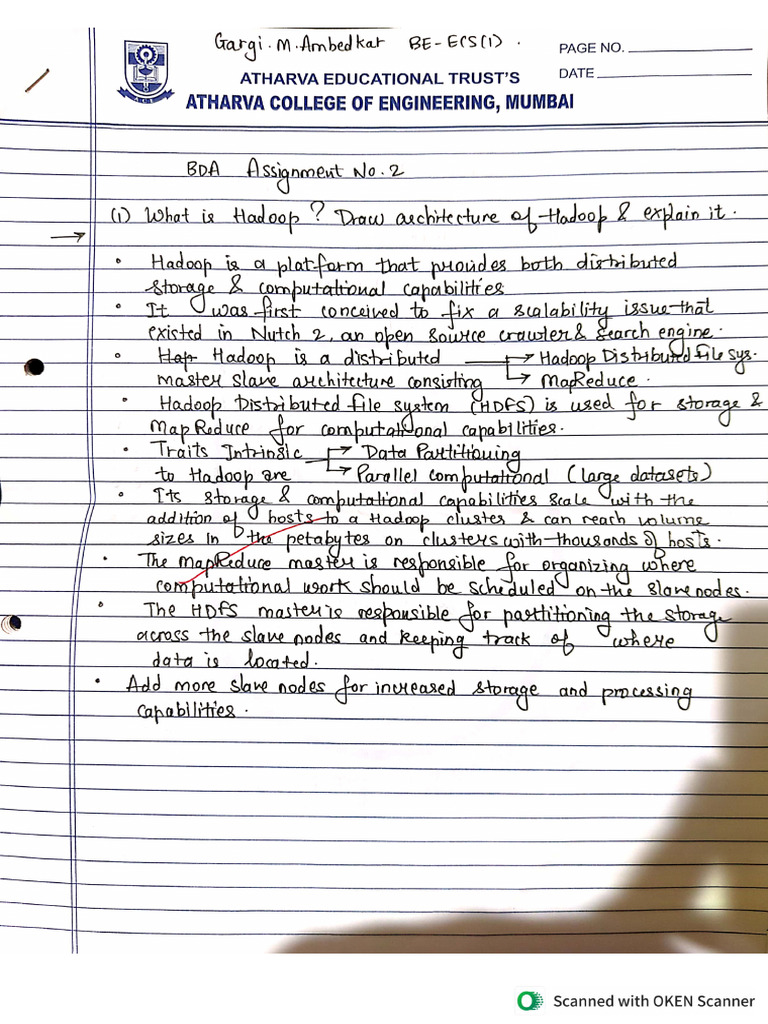 Gargi.M.Ambedkar BE-ECS(1).
PAGE NO.
DATE
ATHARVA EDUCATIONAL TRUST'S
ATHARVA COLLEGE OF ENGINEERING, MUMBAI
ACE
BDA Assignment No.2
(1) What is Hadoop? Draw architecture of Hadoop & explain it.
→
• Hadoop is a platform that provides both distributed
storage & computational capabilities
• It was first conceived to fix a scalability issue that
existed in Nutch 2, an open source crawler & search engine.
• Hap Hadoop is a distributed → Hadoop Distributed File Sys.
master slave architecture consisting → MapReduce.
• Hadoop Distributed file system (HDFS) is used for storage &
MapReduce for computational capabilities.
• Traits Intrinsic → Data Partitioning
to Hadoop are → Parallel computational (large datasets)
• Its storage & computational capabilities scale with the
addition of hosts to a Hadoop cluster & can reach volume
sizes in the petabytes on clusters with thousands of hosts.
• The MapReduce master is responsible for organizing where
computational work should be scheduled on the slave nodes.
• The HDFS master is responsible for partitioning the storage
across the slave nodes and keeping track of where
data is located.
• Add more slave nodes for increased storage and processing
capabilities.
Scanned with OKEN Scanner